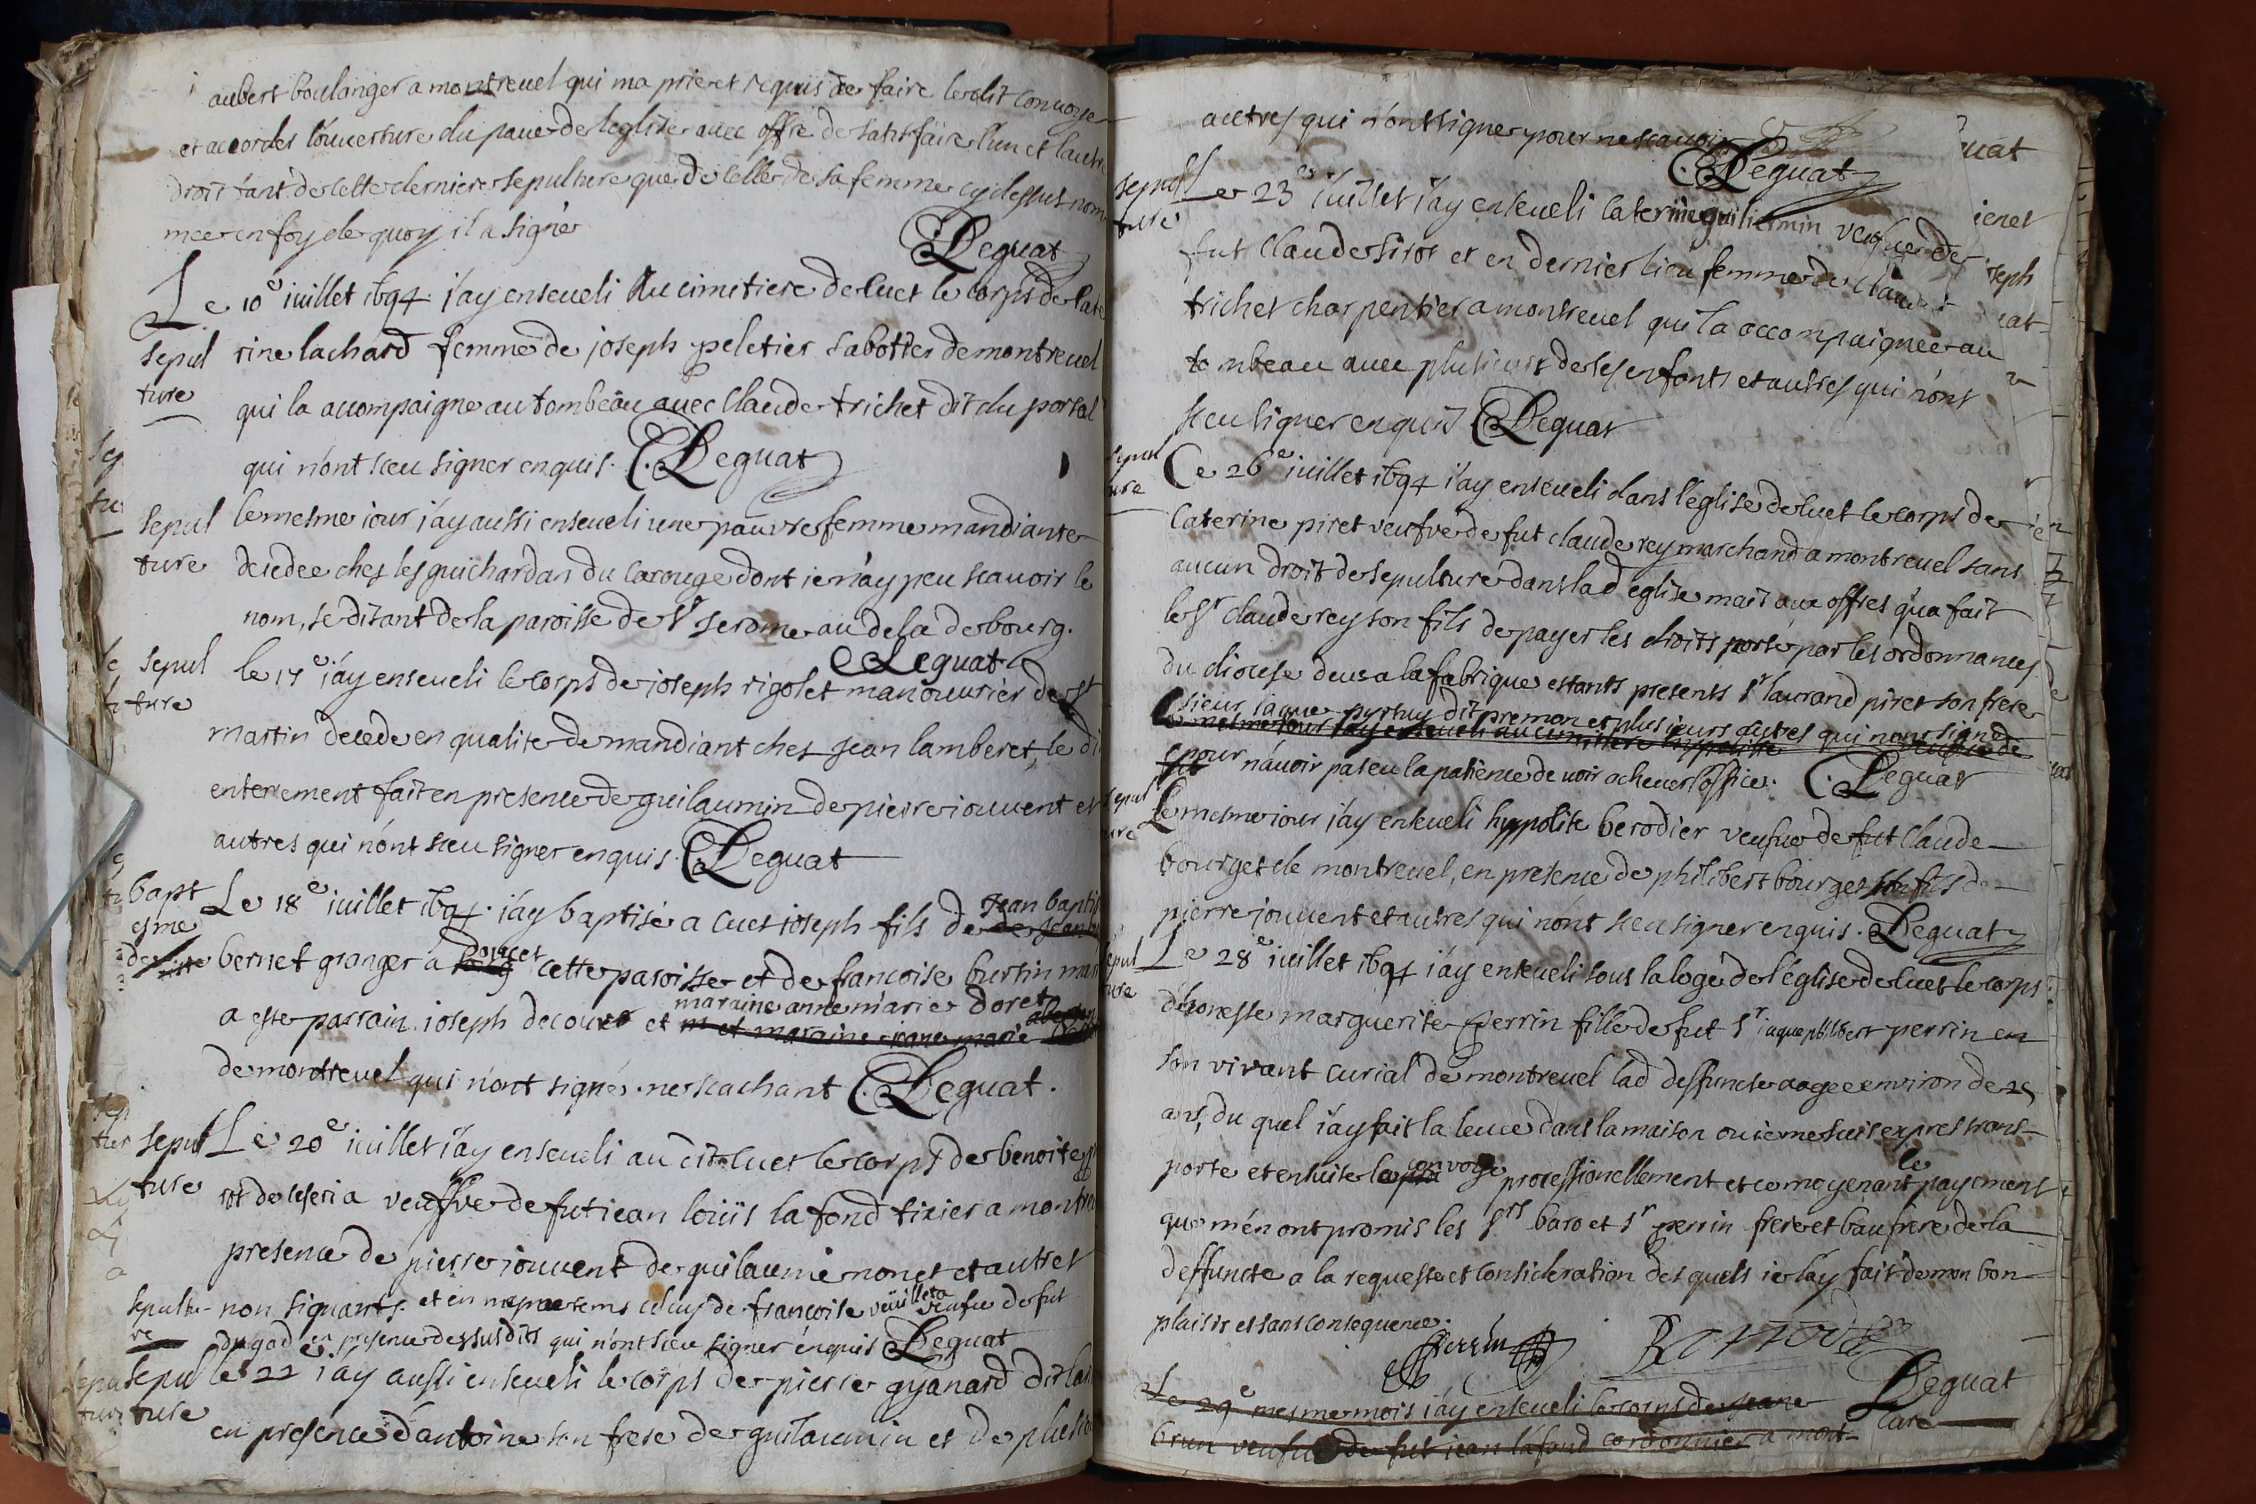 aubert boulanger a montrevel qui ma prie et requis de faire ledit convoye
et accorder louverture du pavé de leglise avec offre de satisfaire lun et lautre
droit tant de cette derniere sepulture que de celle de sa femme cy dessus nom
mee en foy de quoy il a signé
C. Leguat
Le 10e iuillet 1694 i'ay enseveli au cimitiere de cuet le corps de cate
sepul
ture
rine lachard femme de joseph peletier sabotier de montrevel
qui la accompaigne au tombeau avec Claude trichet dit du portal
qui n'ont sceu signer enquis. C. Leguat
sepul
ture
le mesme iour i'ay aussi enseveli une pauvre femme mandiante
decedee chez les guichardan du carouge dont ie n'ay peu scavoir le
nom, se disant de la paroisse de St Jerome au dela de bourg.
C Leguat
sepul
ture
le 17e i'ay enseveli le corps de joseph rigolet manouvrier de st
martin decede en qualite de mandiant chez jean lamberet, le di
enterrement fait en presence de guilaumin de pierre iouvent et
autres qui n'ont sceu signer enquis. C. Leguat
bapt
esme
Le 18e iuillet 1694. i'ay baptisé a cuet ioseph fils de Jean baptis
bernet granger a cette paroisse et de francoise burtin
a este parrain ioseph decourt et maraine anne marie doret
de montrevel qui n'ont signé. ne scachant C. Leguat.
sepul
ture
Le 20e iuillet i'ay enseveli au dit cuet le corps de benoite
veufve de fut iean loüis lafond tixier a montre
presence de pierre jouvent de guilaume nonet et autres
non signants. et en mesme tems celuy de francoise veuilleta veufve de fut
sepultu-
re
dugad en presence des susdits qui n'ont sceu signer enquis Leguat
sepul
ture
le 22e i'ay aussi enseveli le corps de pierre gyanard dit la
en presence d'antoine son frere de guilaumin et de plusieu
autres qui n'ont signer pour ne scavoir
C. Leguat
sepul
ture
Le 23e iuillet i'ay enseveli caterine guiliermin veufve de
fut Claude sirot et en dernier lieu femme de claude
trichet charpentier a montrevel qui la accompaignee au
tombeau avec plusieurs de ses enfants et autres qui n'ont
sceu signer enquis C. Leguat
sepul
ture
Ce 26e iuillet 1694 i'ay enseveli dans l'eglise de cuet le corps de
Caterine piret veufve de fut claude rey marchand a montrevel sans
aucun droit de sepulture dans lad eglise mais aux offres qu'a fait
le Sr claude rey son fils de payer les droits porté par les ordonnances
du diocese deus a la fabrique estants presents Sr laurand piret son frere
sieur iaque dit premon et plusieurs autres qui n'ont signé
le mesme iour i'ay enseveli au cimitiere hyppolite veufve de
fut
pour n'avoir pas eu la patience de voir achever l'office. C. Leguat
sepul
ture
Le mesme iour i'ay enseveli hyppolite berodier veufve de fut Claude
bourget de montrevel, en presence de philibert bourget son fils de
pierre jouvent et autres qui n'ont sceu signer enquis. C. Leguat
sepul
ture
Le 28e iuillet 1694 i'ay enseveli sous la loge de l'église de cuet le corps
d'honeste marguerite perrin fille de fut Sr iaque philibert perrin en
son vivant curial de montrevel lad deffuncte aagee environ de 25
ans, du quel i'ay fait la levee dans la maison ou ie me suis expres trans-
porte et ensuite le convoye processionellement et ce moyenant le payement
que m'en ont promis les Srs baro et Sr perrin frere et baufrere de la
deffuncte a la requeste et consideration des quels ie l'ay fait de mon bon
plaisir et sans consequence.
Perrin
C. Leguat
cure
Le 29e mesme mois i'ay enseveli le corps de jeane
brun veufve de fut iean lafond cordonnier a mont-